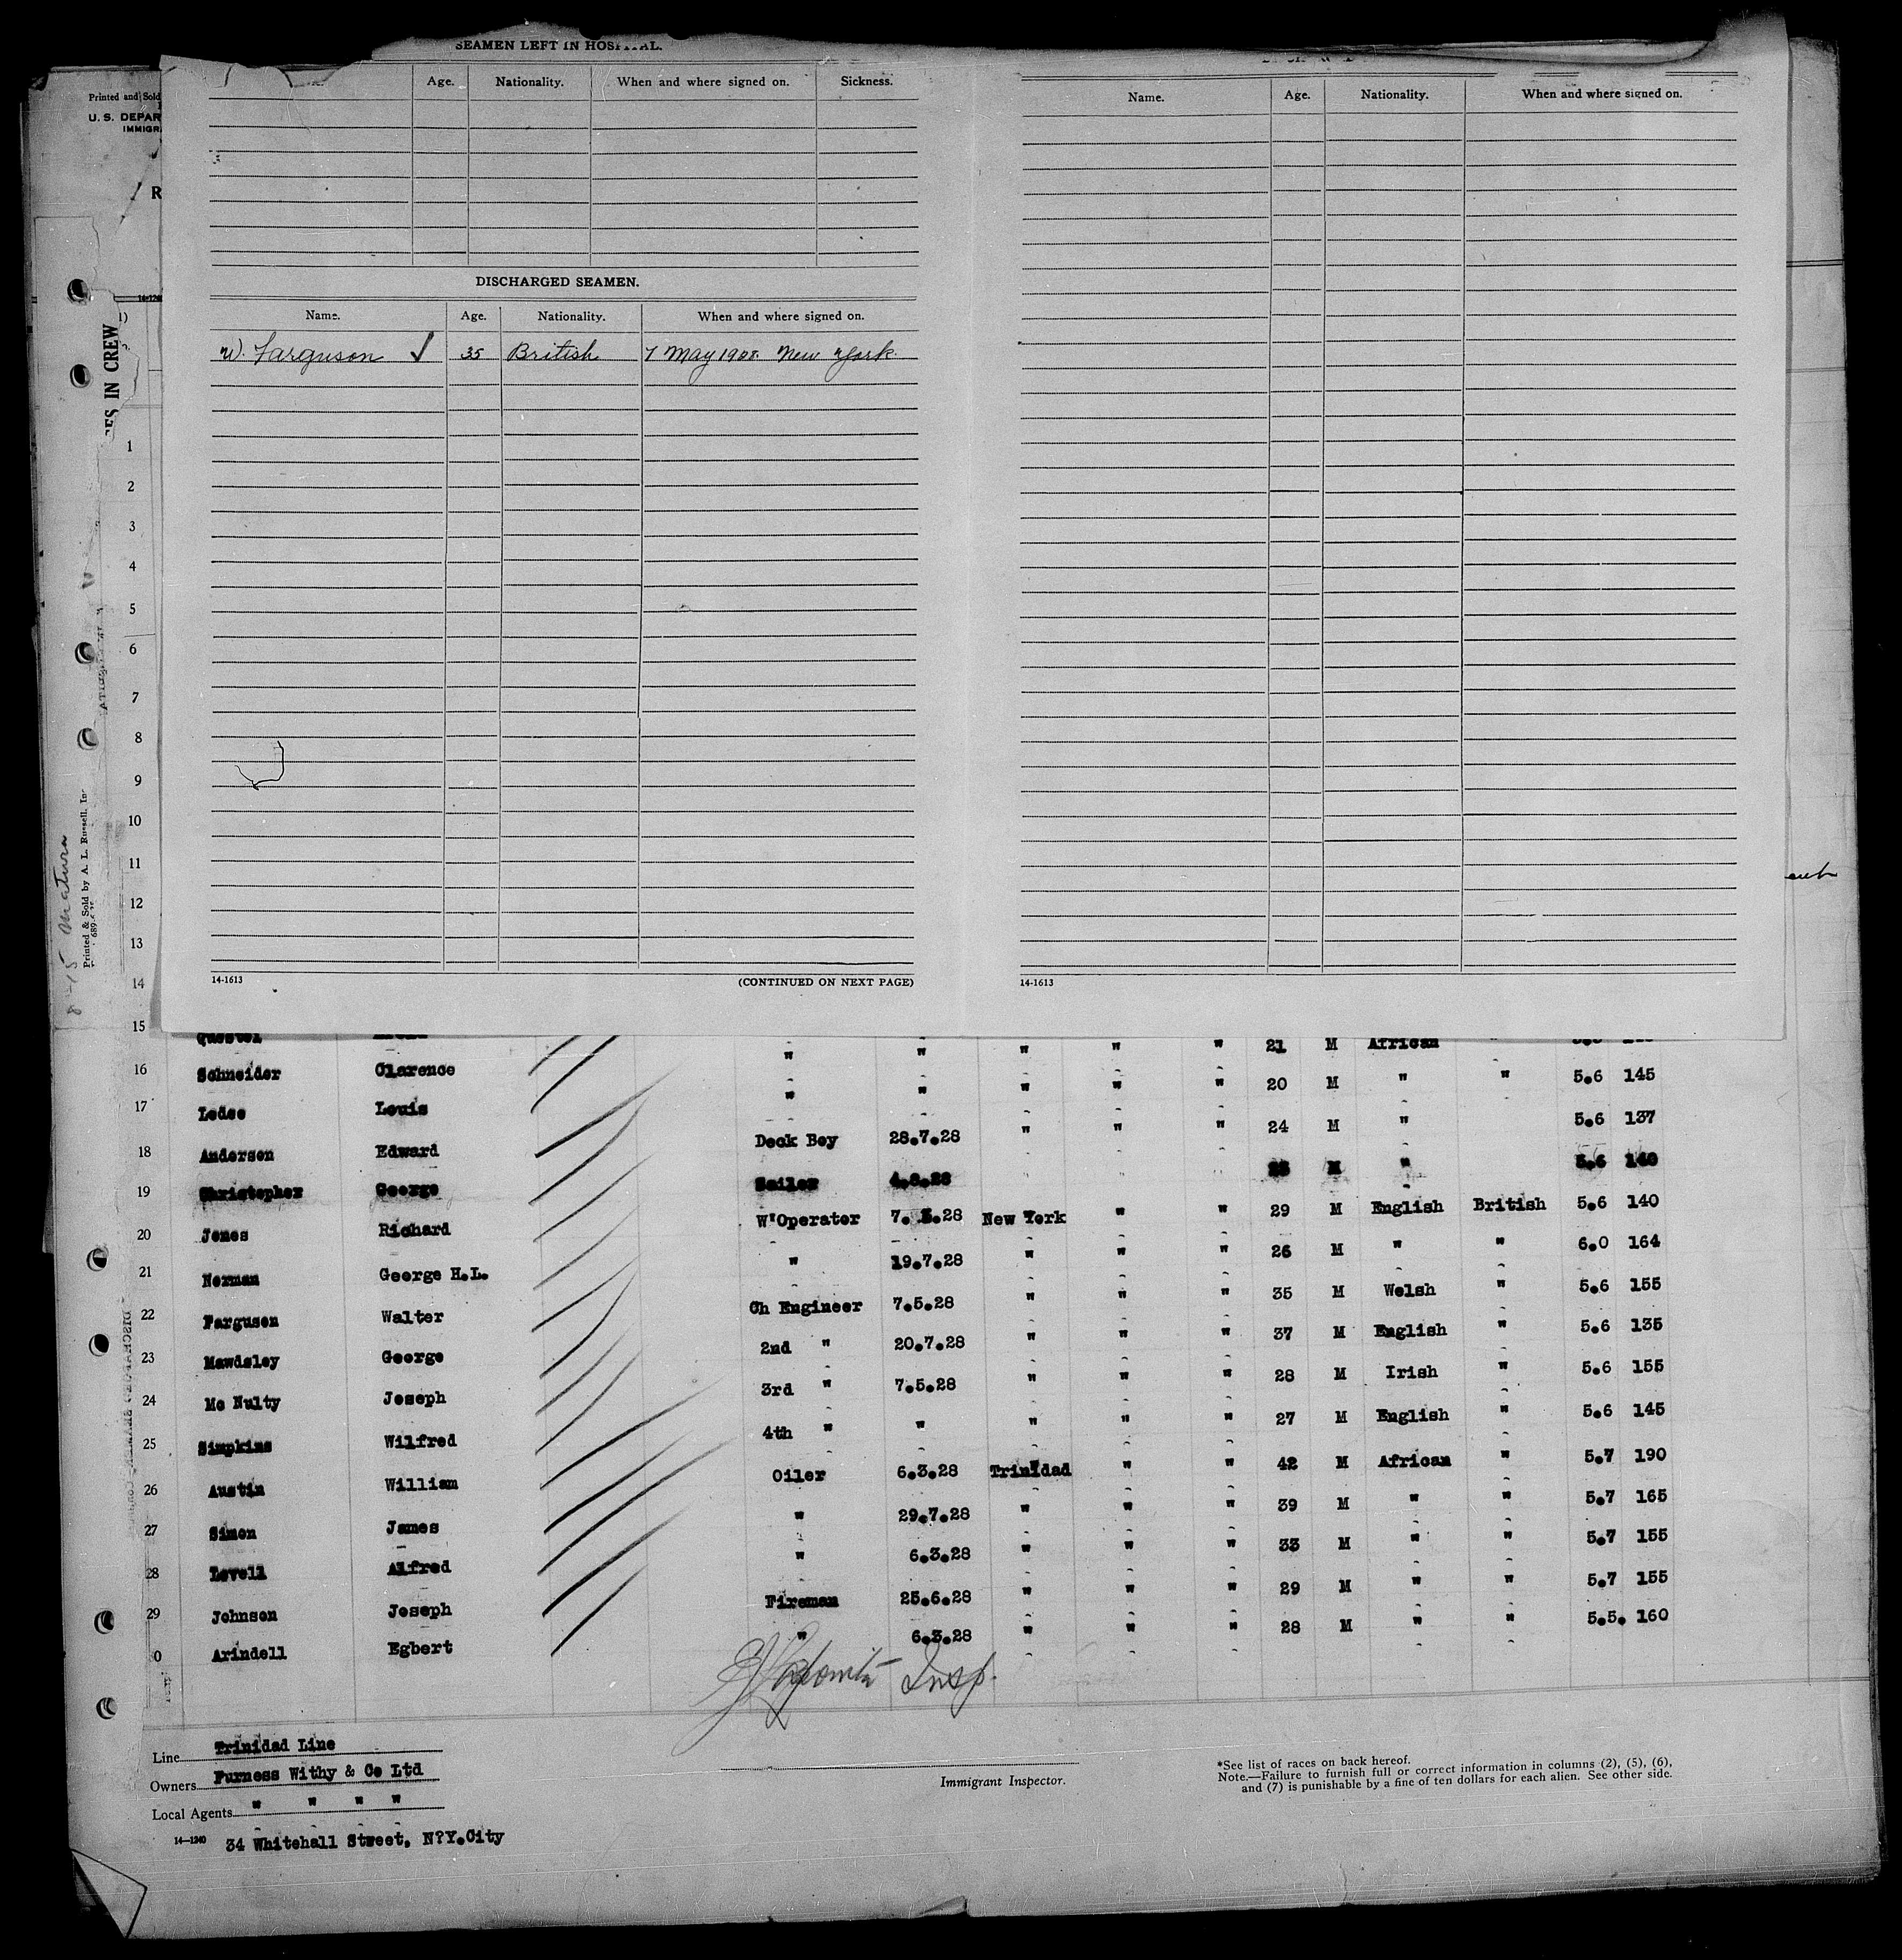 SEAMEN LEFT IN HOSPITAL.
Age. Nationality. When and where signed on. Sickness.
DISCHARGED SEAMEN.
Name. Age. Nationality. When and where signed on.
W. Farguson ✓ 35 British 7 May 1928 New York.
14-1613 (CONTINUED ON NEXT PAGE)
Name. Age. Nationality. When and where signed on.
14-1613
Printed and Sold
U. S. DEPAR
IMMIGR
R
IN CREW
Printed & Sold by A. L. Russell, Inc
8-15 Matura
1
2
3
4
5
6
7
8
9
10
11
12
13
14
15 Questel " " " " " 21 M African
16 Schneider Clarence " " " " " 20 M " " 5.6 145
17 Ledee Louis " " " 24 M " 5.6 137
18 Anderson Edward Deck Boy 28.7.28 M " 5.6 140
19 Christopher George Sailor 4.8.28
20 Jones Richard W'Operator 7. 5.28 New York " " 29 M English British 5.6 140
21 Norman George H.L. " 19.7.28 " " " 26 M " " 6.0 164
22 Farguson Walter Ch Engineer 7.5.28 " " " 35 M Welsh " 5.6 155
23 Mawdsley George 2nd " 20.7.28 " " " 37 M English " 5.6 135
24 Mc Nulty Joseph 3rd " 7.5.28 " " " 28 M Irish " 5.6 155
25 Simpkins Wilfred 4th " " " " " 27 M English " 5.6 145
26 Austin William Oiler 6.3.28 Trinidad " " 42 M African " 5.7 190
27 Simon James " 29.7.28 " " " 39 M " " 5.7 165
28 Lovell Alfred " 6.3.28 " " " 33 M " " 5.7 155
29 Johnson Joseph Fireman 25.6.28 " " " 29 M " " 5.7 155
0 Arindell Egbert " 6.3.28 " " " 28 M " " 5.5. 160
Insp.
Line Trinidad Line
Owners Furness Withy & Co Ltd
Local Agents " " " "
14—1240 34 Whitehall Street, N?Y.City
Immigrant Inspector.
*See list of races on back hereof.
Note.—Failure to furnish full or correct information in columns (2), (5), (6),
and (7) is punishable by a fine of ten dollars for each alien. See other side.